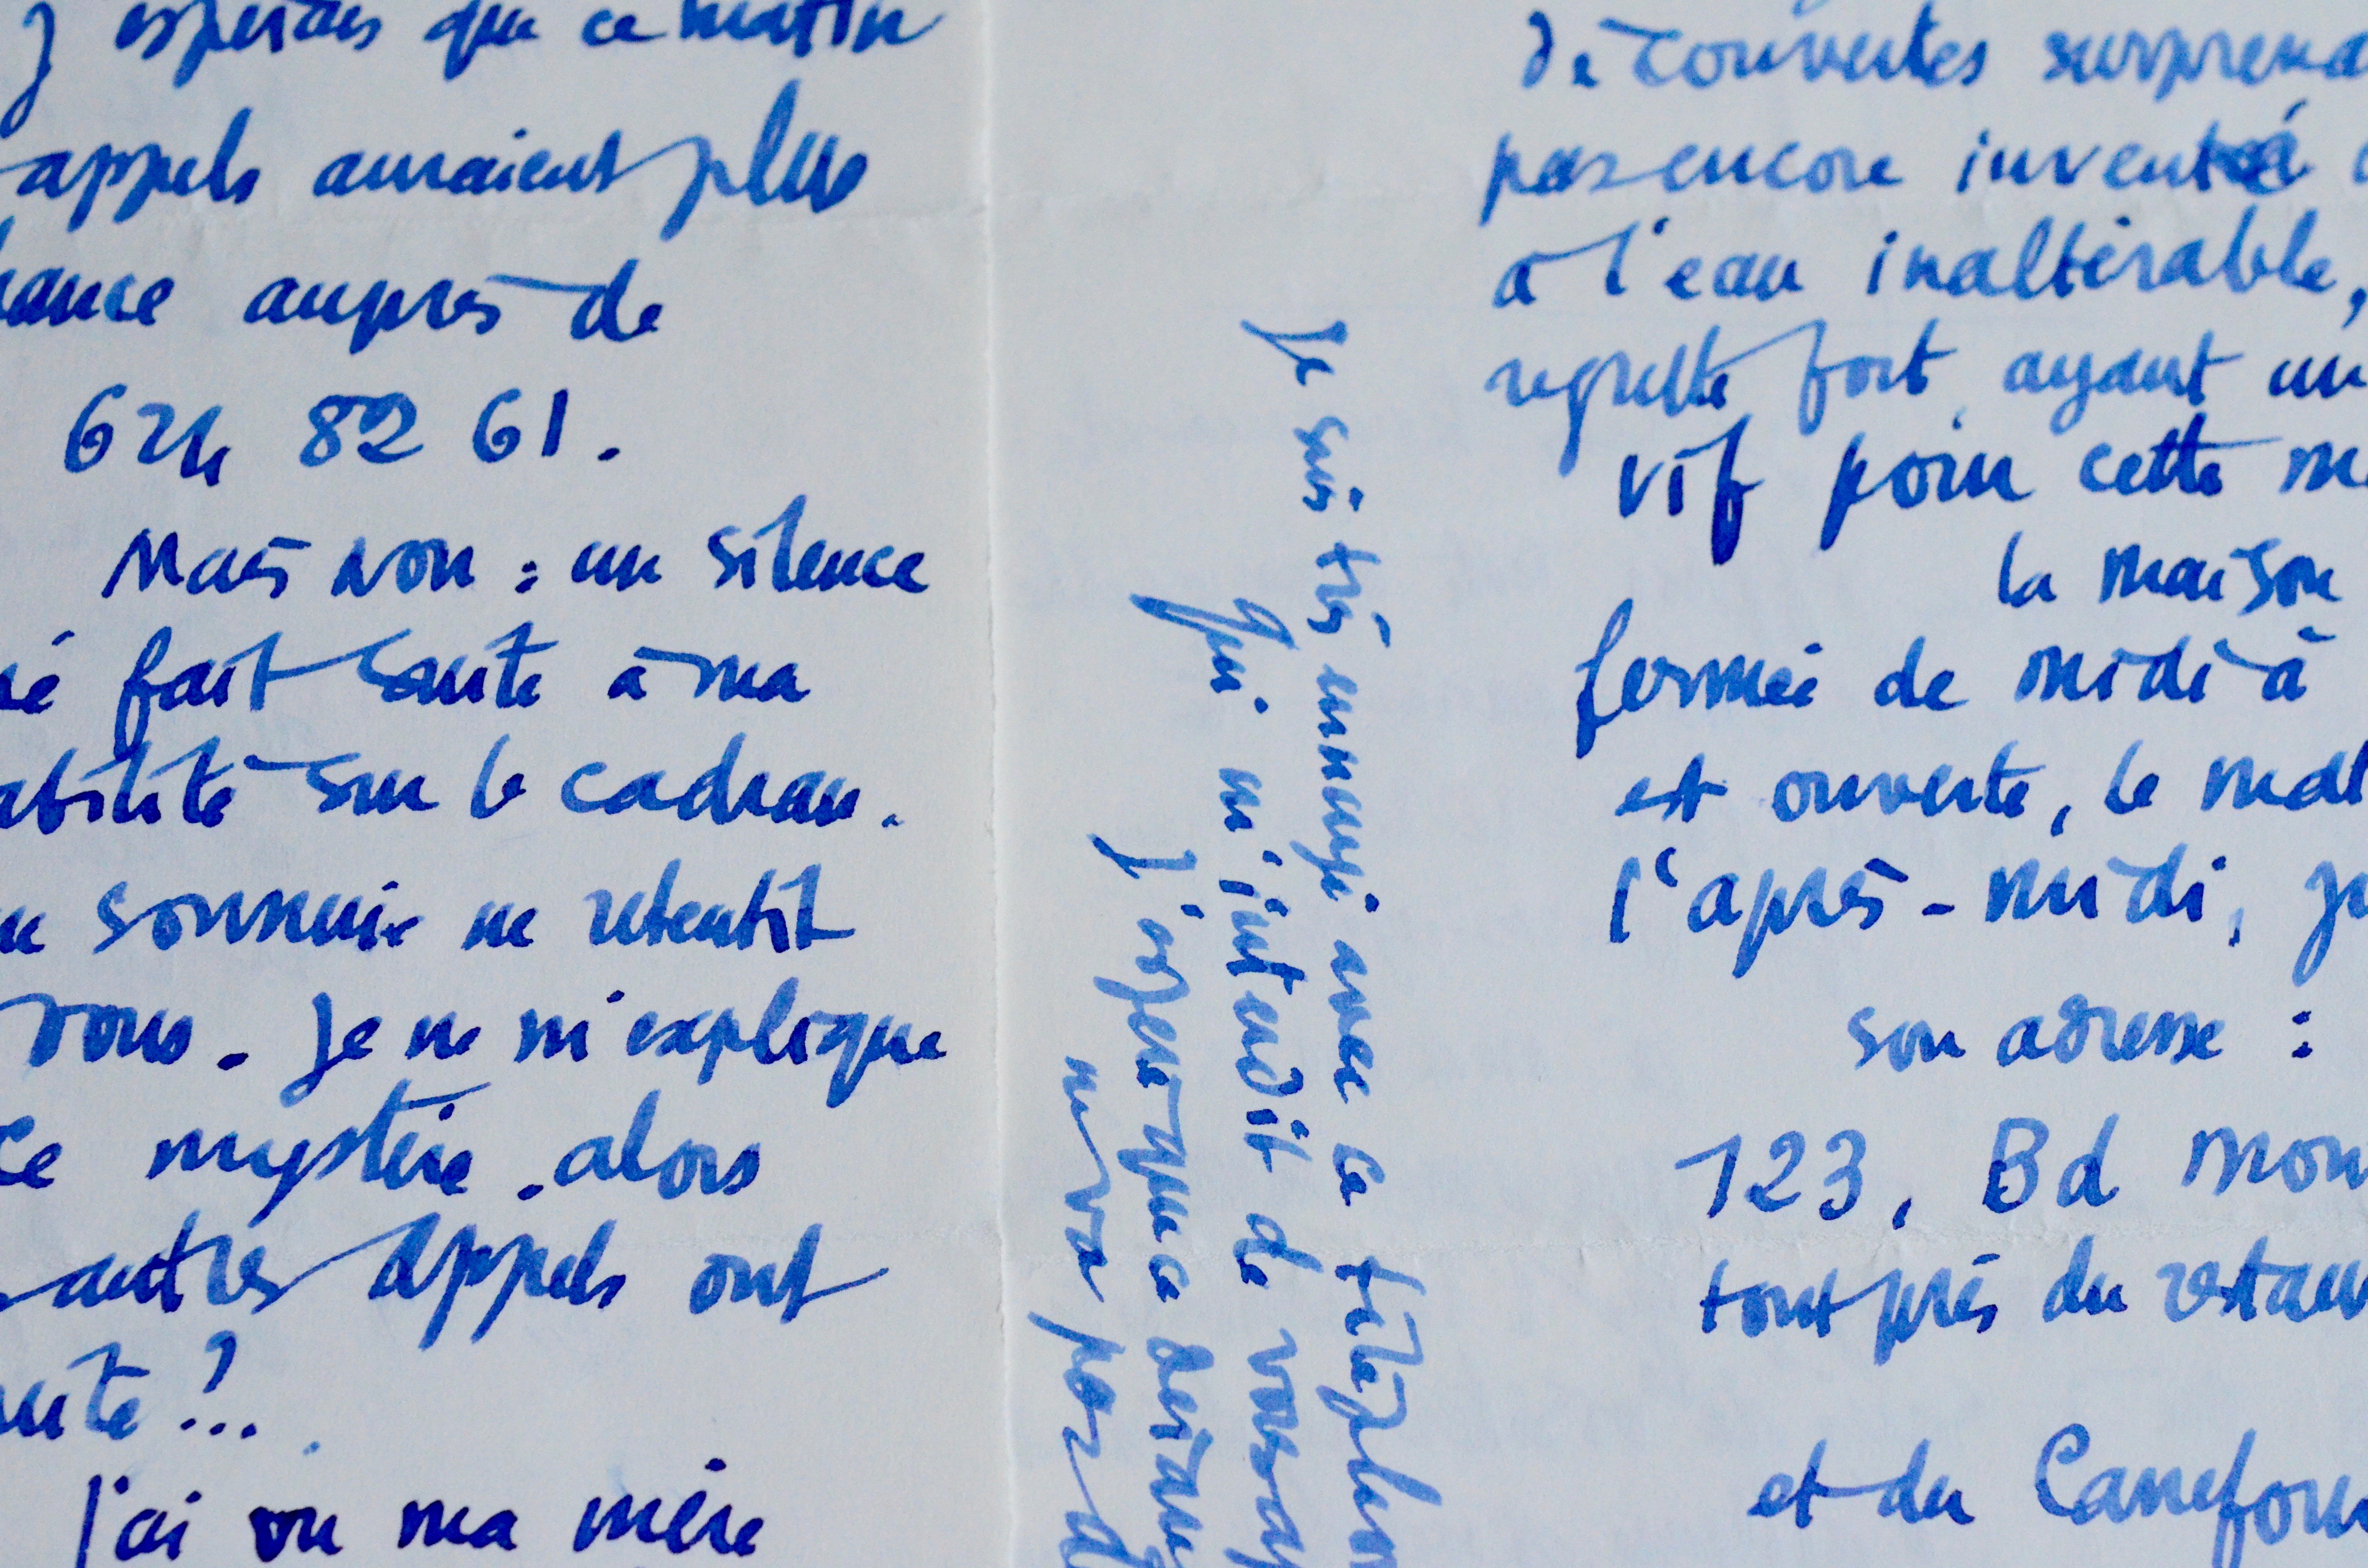 J'espérais que ce matin
appels auraient plus
hance auprès de
624 82 61.
Mais non : un silence
né fait suite à ma
abilité sur le cadran.
sonnerie ne retentit
vous. Je ne m'explique
ce mystère. alors
autres appels ont
?..
J'ai vu ma mère
Je suis très ennuyé avec ce téléphon
qui m'interdit de vous ap
J'espère que ce déran
ne va pas d
découvertes surprena
pas encore inventé
à l'eau inaltérable,
regrette fort, ayant un
vif pour cette m
la maison
fermée de midi à
est ouverte, le mat
l'après-midi, j
son adresse :
123, Bd Mon
tout près du restau
et du Carrefour